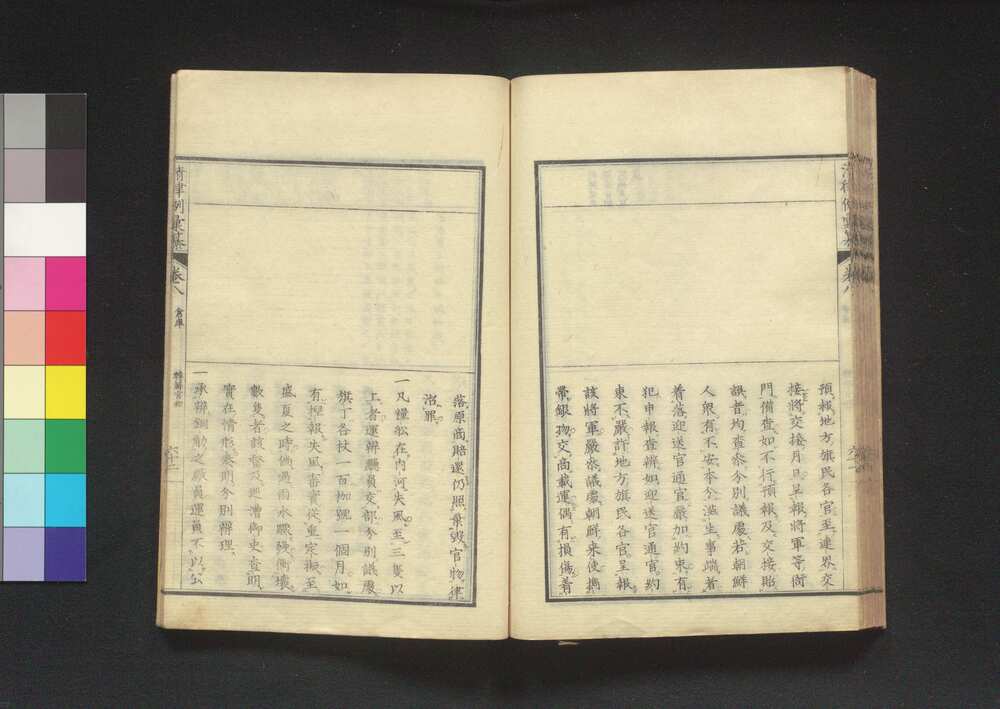 預報地方旗民各官至連界交
接將交接月日呈報將軍等衙
門備查如不行預報及交接貽
誤者均查參分別議處若朝鮮
人衆有不安本分滋生事端者
着落迎送官通官嚴加約束有
犯申報查辦如迎送官通官約
束不嚴許地方旗民各官呈報
該將軍嚴參議處朝鮮來使攜
帶銀物交商載運偶有損傷着
落原商賠還仍照棄毀官物律
治罪
一凡糧船在內河失風至三隻以
上者運辦廳員交部分別議處
旗丁各杖一百枷號一個月如
有捏報失風審實從重定擬至
盛夏之時偶遇雨水驟發衝壞
數隻者該督及廵漕御史查明
實在情形奏明分別辦理
一承辦銅觔之廠員運員不以公
清律例彙纂
卷八
倉庫